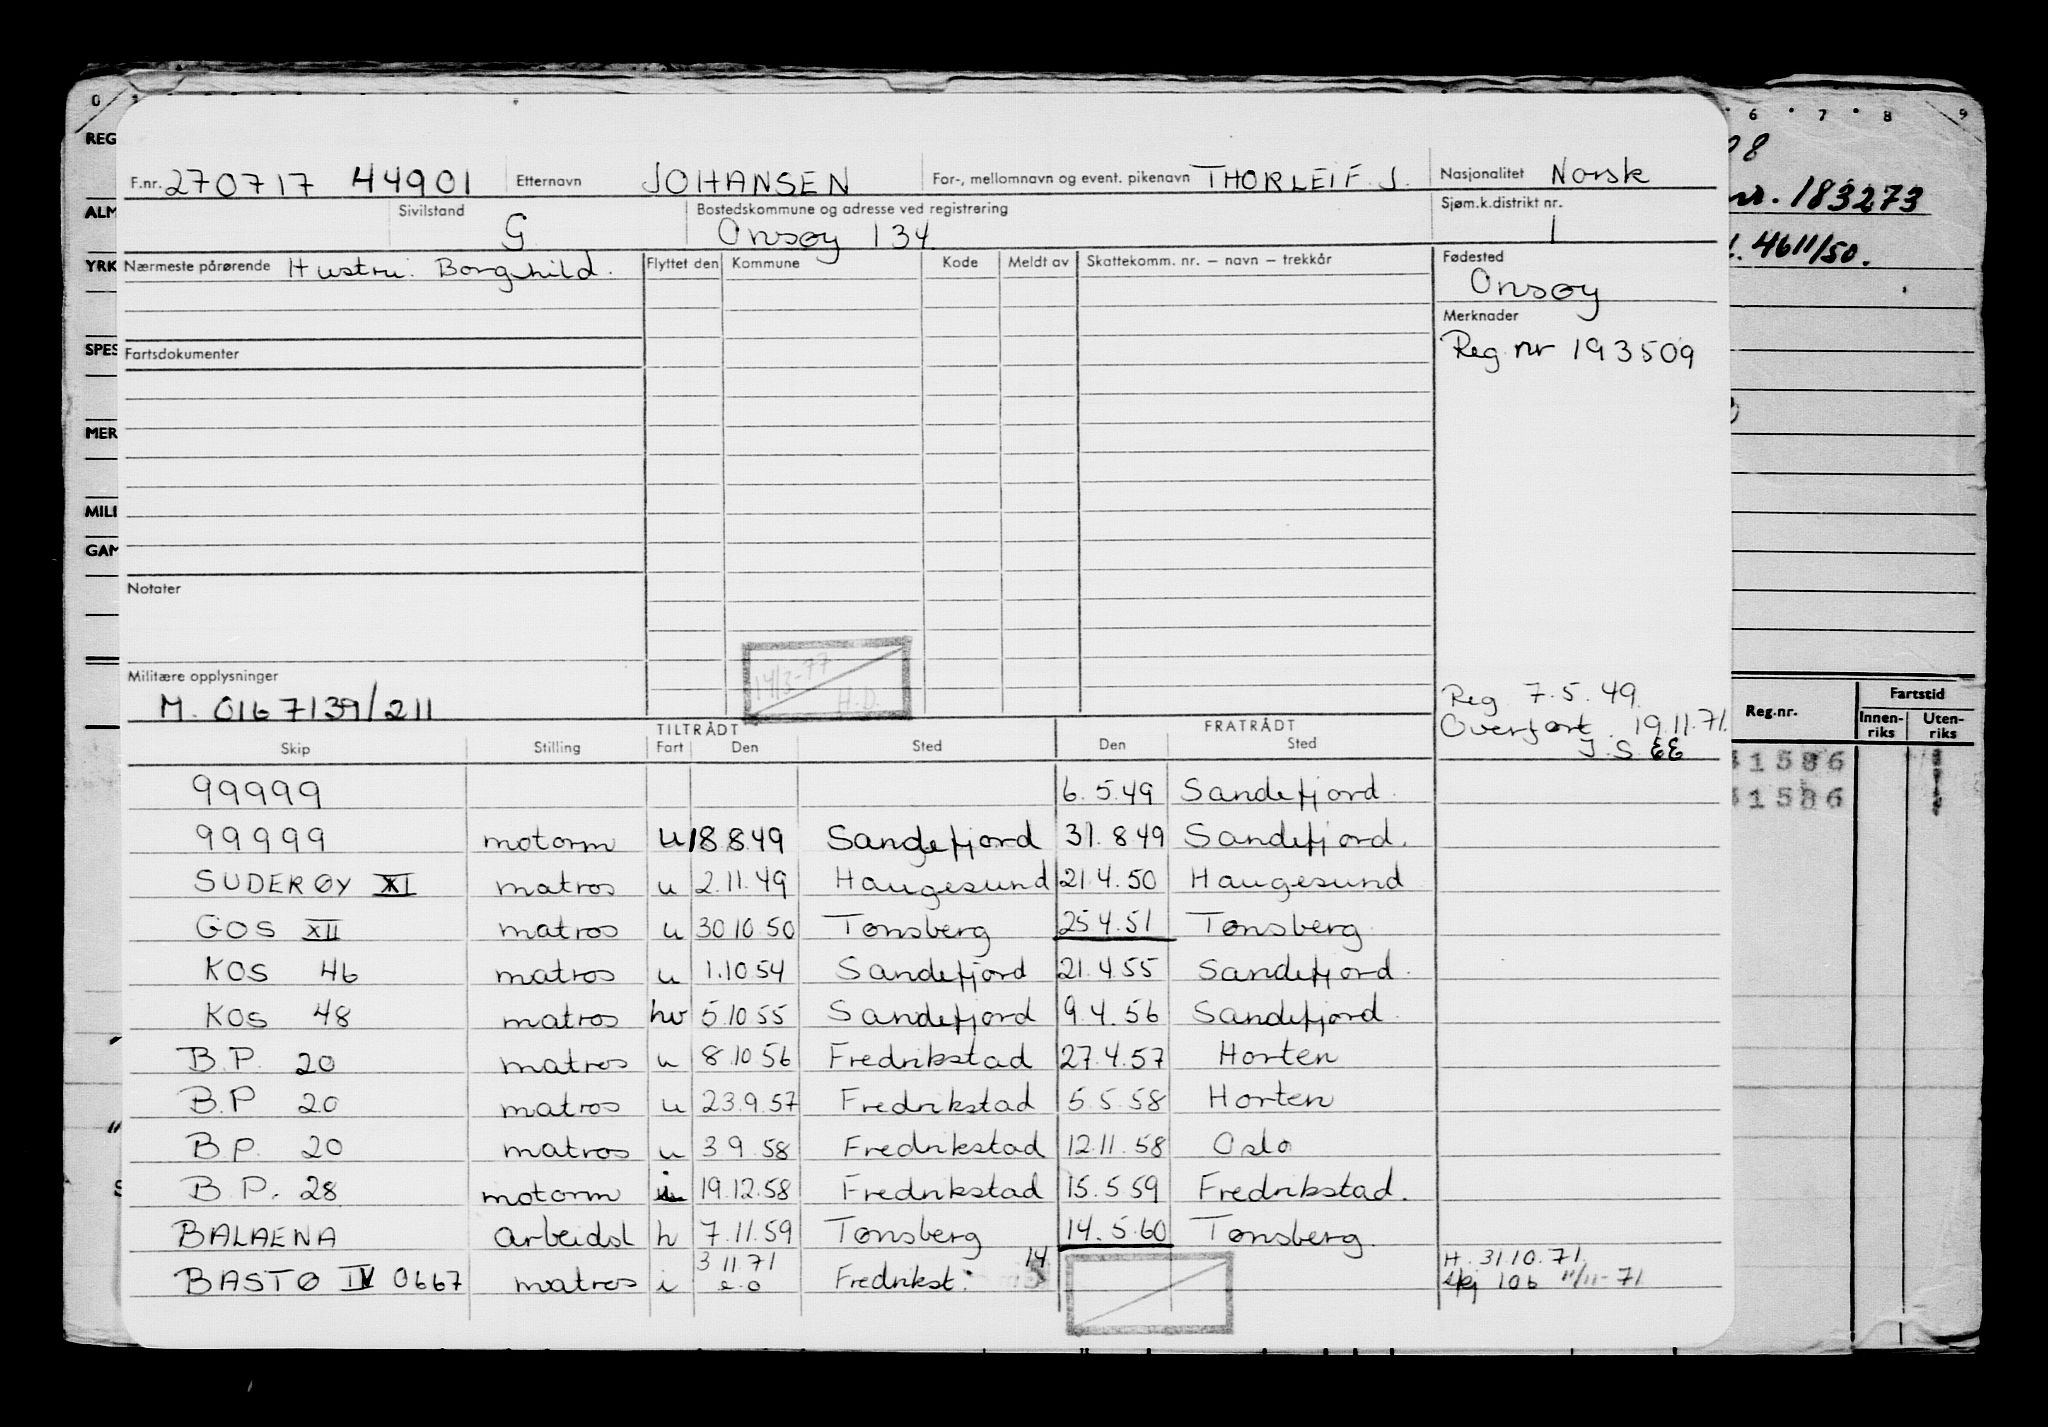 0 6 7 8 9
REG
08
F.nr. 270717 44901 Etternavn JOHANSEN For-, mellomnavn og event. pikenavn THORLEIF. J. Nasjonalitet Norsk
nr. 183273
ALM
Sivilstand G Bostedskommune og adresse ved registrering Onsøy 134 Sjøm.k.distrikt nr. 1
4611/50.
YRK
Nærmeste pårørende Hustru: Borghild. Flyttet den Kommune Kode Meldt av Skattekomm. nr. – navn – trekkår Fødested
Onsøy
Merknader
SPES
Fartsdokumenter
Reg nr 193509
MER
MILI
GAM
Notater
14/3-77
H.D.
Militære opplysninger
M. 0167139/211
Reg 7.5.49.
Overført 19.11.71.
J.S. EE
Reg.nr. Fartstid
Innen-riks Uten-riks
TILTRÅDT FRATRÅDT
Skip Stilling Fart Den Sted Den Sted
99999 6.5.49 Sandefjord.
99999 motorm u 18.8.49 Sandefjord 31.8.49 Sandefjord.
SUDERØY XI matros u 2.11.49 Haugesund 21.4.50 Haugesund
GOS XII matros u 30.10.50 Tønsberg 25.4.51 Tønsberg.
KOS 46 matros u 1.10.54 Sandefjord 21.4.55 Sandefjord.
KOS 48 matros hv 5.10.55 Sandefjord 9.4.56 Sandefjord.
B.P. 20 matros u 8.10.56 Fredrikstad 27.4.57 Horten
B.P 20 matros u 23.9.57 Fredrikstad 5.5.58 Horten
B.P. 20 matros u 3.9.58 Fredrikstad 12.11.58 Oslo
B.P. 28 motorm i 19.12.58 Fredrikstad 15.5.59 Fredrikstad.
BALAENA arbeidsl h 7.11.59 Tønsberg 14.5.60 Tønsberg.
BASTØ IV 0667 matros i 3.11.71 e.o Fredrikst. 14
H. 31.10.71.
106 11/11-71